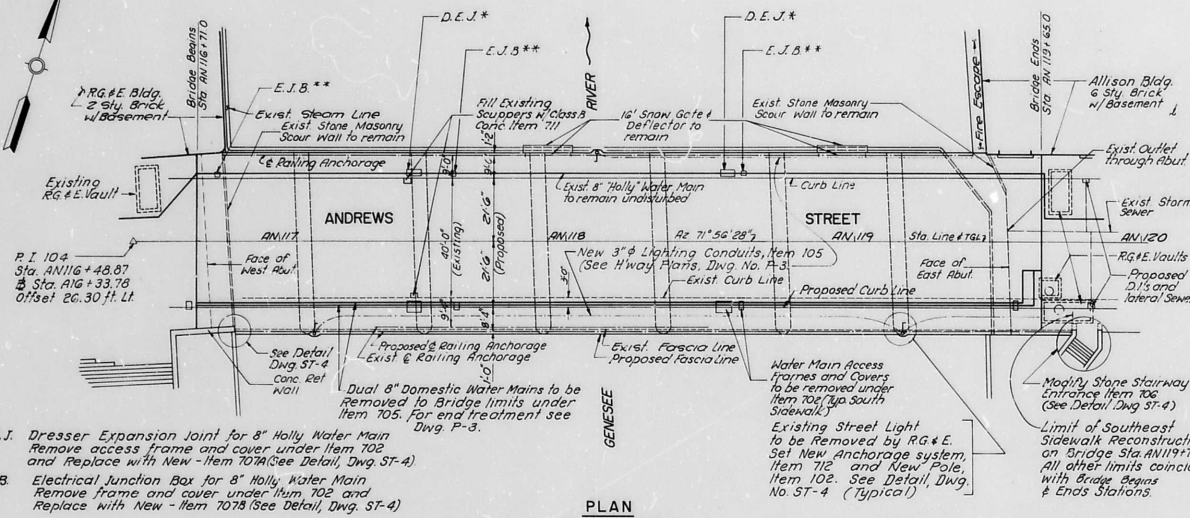 D.E.J.*
D.E.J.*
E.J.B**
E.J.B.**
RIVER
Bridge Begins
Sta. AN116+71.0
R.G.&E. Bldg.
2 Sty. Brick
w/Basement
E.J.B.**
Exist. Steam Line
Exist. Stone Masonry
Scour Wall to remain
Fill Existing
Scuppers w/Class B
Conc. Item 711
16' Snow Gate &
Deflector to
remain
Exist. Stone Masonry
Scour Wall to remain
Fire Escape
Bridge Ends
Sta. AN119+65.0
Allison Bldg.
6 Sty. Brick
w/Basement
Exist. Outlet
through Abut.
Exist. Storm
Sewer
℄ Railing Anchorage
1'-2"
9'-0"
Existing
R.G.&E. Vault
Exist. 8" "Holly" Water Main
to remain undisturbed
Curb Line
ANDREWS
STREET
40'-0"
(Existing)
21'-6"
21'-6"
(Proposed)
AN117
AN118
Az 71°56'28"
AN119
Sta. Line & TGL
AN120
P.I. 104
Sta. AN116+48.87
Sta. A16+33.78
Offset 26.30 ft. Lt.
Face of
West Abut.
New 3"⌀ Lighting Conduits, Item 105
(See H'way Plans, Dwg. No. P-3)
3'0"
Exist. Curb Line
Proposed Curb Line
Face of
East Abut.
R.G.&E. Vaults
Proposed
D.I.'s and
lateral Sewer
8'-4"
1'-0"
See Detail
Dwg. ST-4
Conc. Ret
Wall
Proposed ℄ Railing Anchorage
Exist ℄ Railing Anchorage
Exist. Fascia Line
Proposed Fascia Line
Dual 8" Domestic Water Mains to be
Removed to Bridge limits under
Item 705. For end treatment see
Dwg. P-3.
GENESEE
Water Main Access
Frames and Covers
to be removed under
Item 702 (Typ. South
Sidewalk)
Existing Street Light
to be Removed by R.G.&E.
Set New Anchorage system,
Item 712 and New Pole,
Item 102. See Detail, Dwg.
No. ST-4 (Typical)
Modify Stone Stairway
Entrance Item 706
(See Detail Dwg ST-4)
Limit of Southeast
Sidewalk Reconstructi
on Bridge Sta. AN119+7
All other limits coincid
with Bridge Begins
& Ends Stations.
.J. Dresser Expansion Joint for 8" Holly Water Main
Remove access frame and cover under Item 702
and Replace with New - Item 707A (See Detail, Dwg. ST-4)
B. Electrical Junction Box for 8" Holly Water Main
Remove frame and cover under Item 702 and
Replace with New - Item 707B (See Detail, Dwg. ST-4)
PLAN